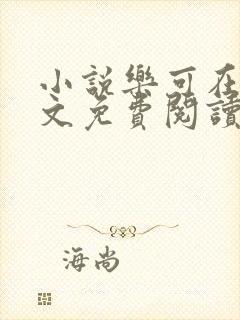 小說樂可在
文免費閱讀
海尚